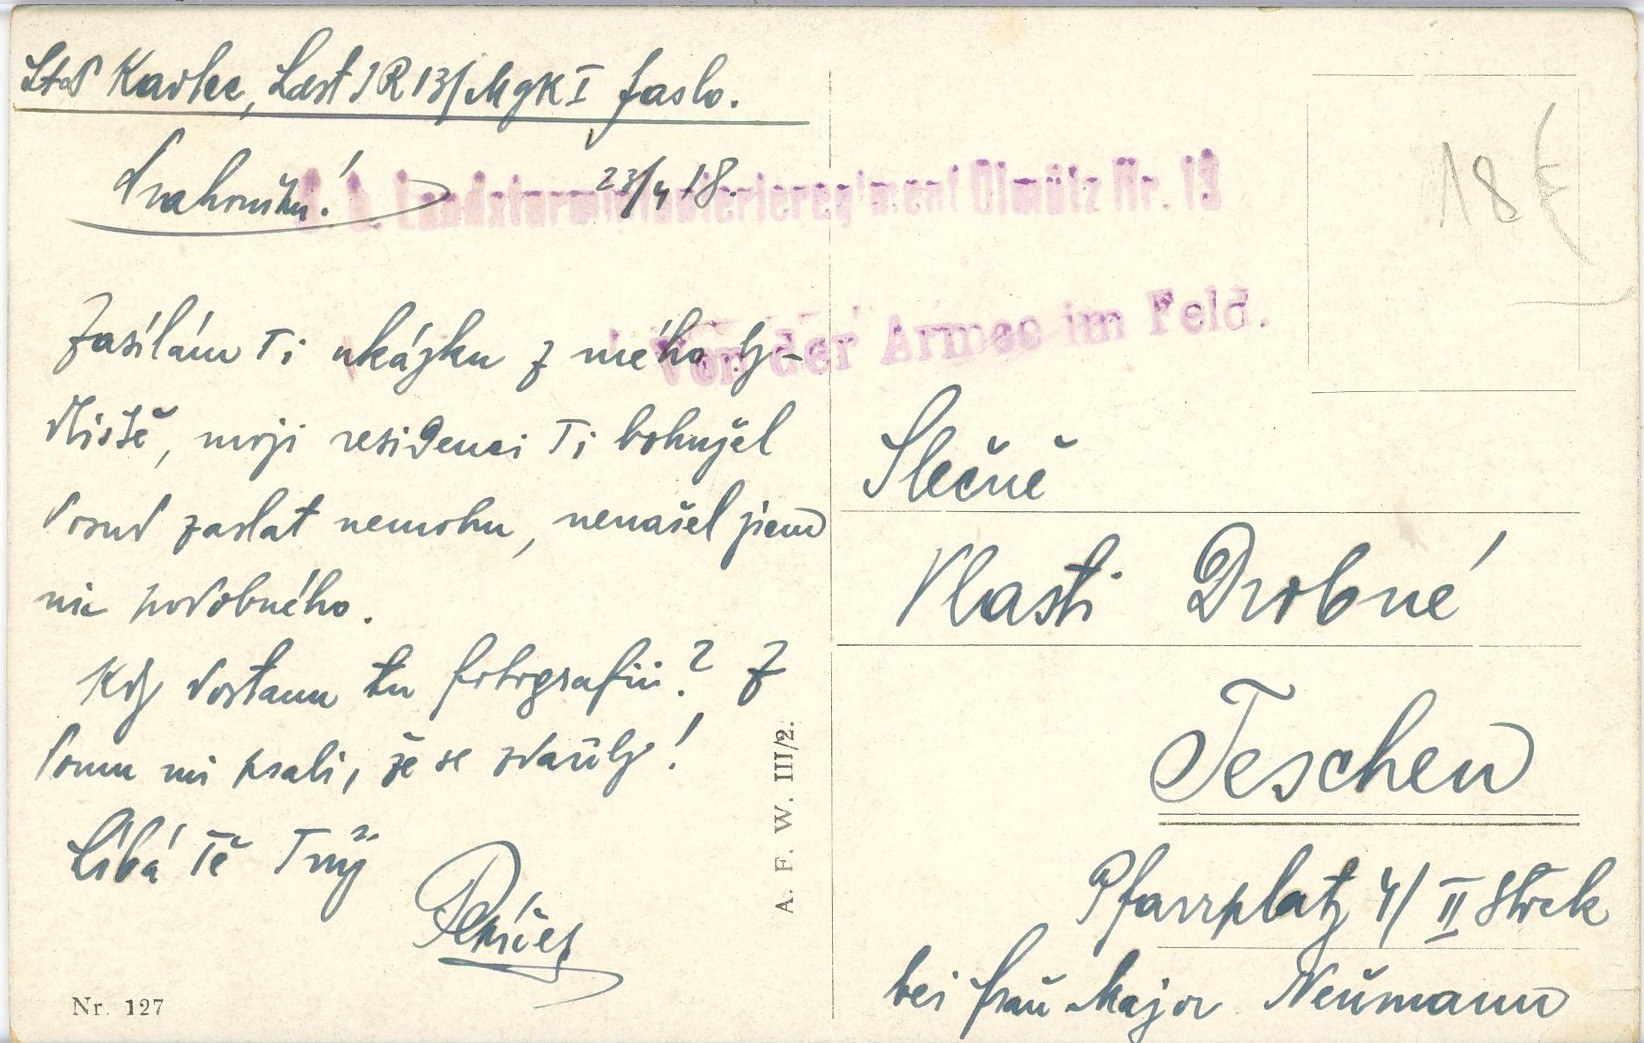 Ltd Karlec, Ldst I R 13/MgK I Jaslo.
Drahoušku! 23/4 18.
k. k. Landsturminfanterieregiment Olmütz Nr. 13
Von der Armee im Feld.
Zasílám Ti ukázku z mého by-
dliště, moji residenci Ti bohužel
dosud zaslat nemohu, nenašel jsem
nic podobného.
Kdy dostanu tu fotografii? Z
domu mi psali, že se zdařily!
Líbá Tě Tvůj
Slečně
Vlasti Drobné
Teschen
Pfarrplatz 4/ II Stock
bei Frau Major Neumann
A. F. W. III/2.
Nr. 127
18 €